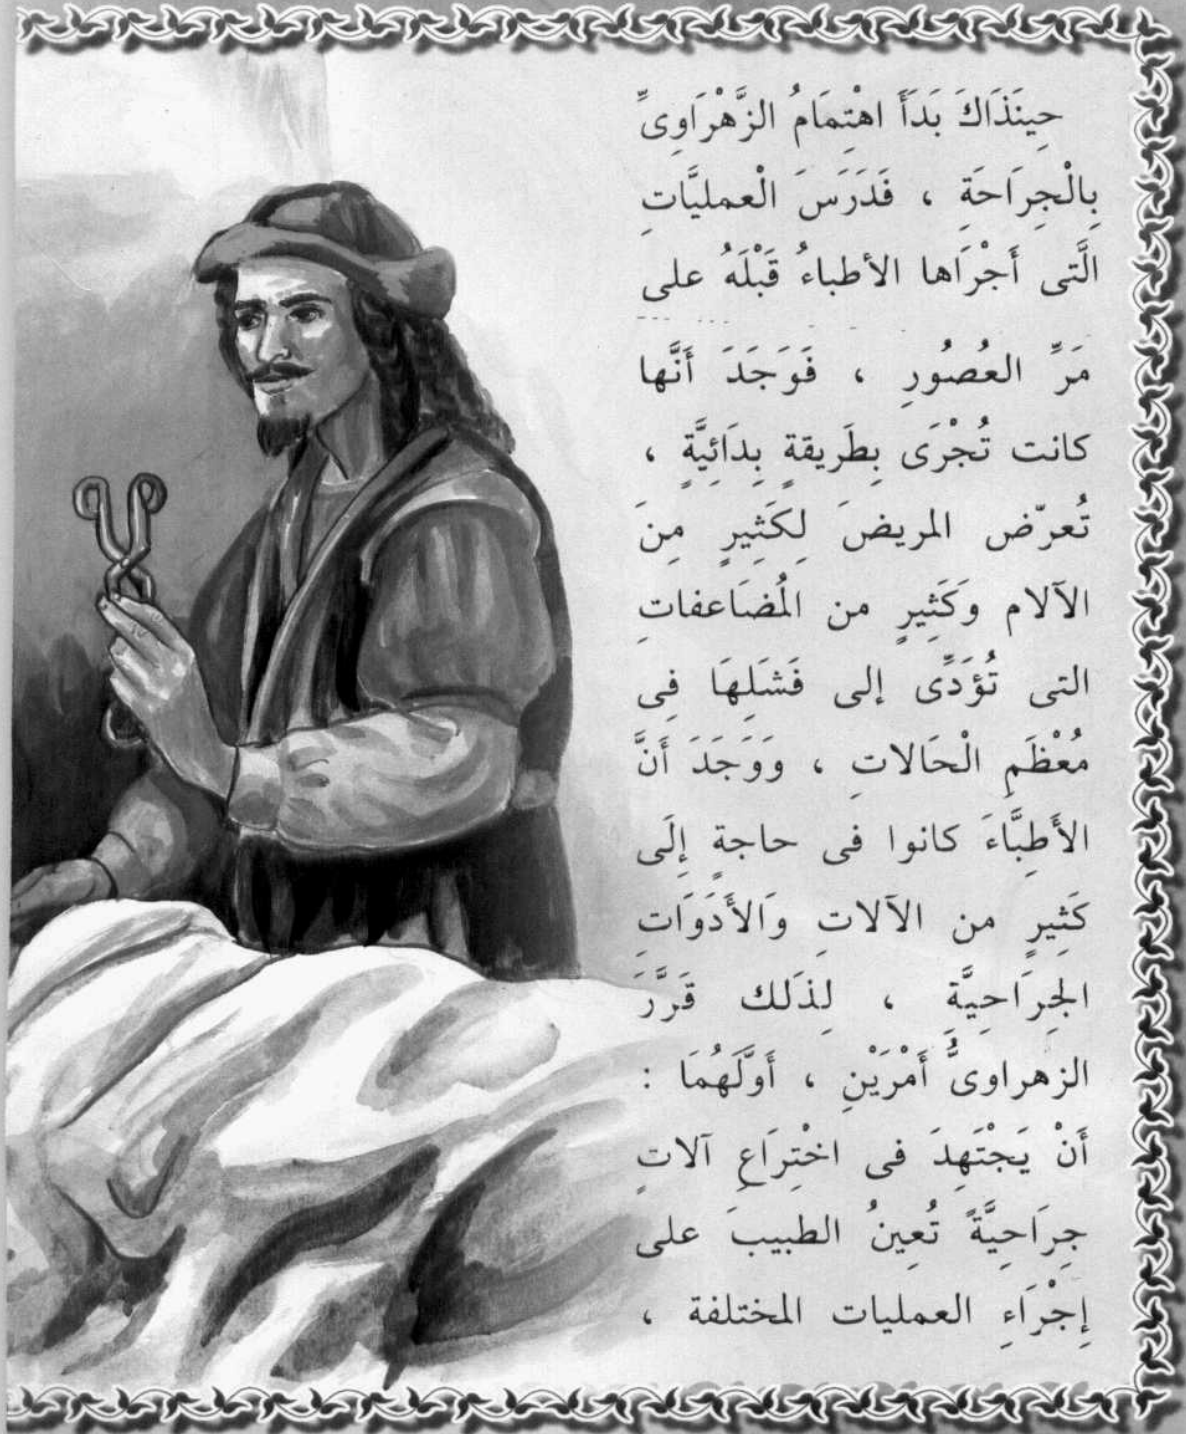 حِينَذَاكَ بَدَأَ اهْتِمَامُ الزَّهْرَاوِىِّ
بِالْجِرَاحَةِ ، فَدَرَسَ الْعمليَّاتِ
الَّتى أَجْرَاها الأطباءُ قَبْلَهُ على
مَرِّ العُصُورِ ، فَوَجَدَ أَنَّها
كانت تُجْرَى بِطَرِيقةٍ بِدَائِيَّةٍ ،
تُعرّض المريضَ لِكَثِيرٍ مِنَ
الآلام وَكَثِيرٍ من المُضَاعفاتِ
التى تُؤَدِّى إلى فَشَلِهَا فِى
مُعْظَمِ الْحَالاتِ ، وَوَجَدَ أَنَّ
الأَطِبَّاءَ كانوا فى حاجةٍ إِلَى
كَثِيرٍ من الآلاتِ وَالأَدَوَاتِ
الجِرَاحِيَّةِ ، لِذَلك قَرَّرَ
الزهراوىُّ أَمْرَيْنِ ، أَوَّلَهُمَا :
أَنْ يَجْتَهِدَ فى اخْتِرَاعِ آلاتٍ
جِرَاحِيَّةً تُعِينُ الطبيبَ على
إِجْرَاءِ العمليات المختلفة ،